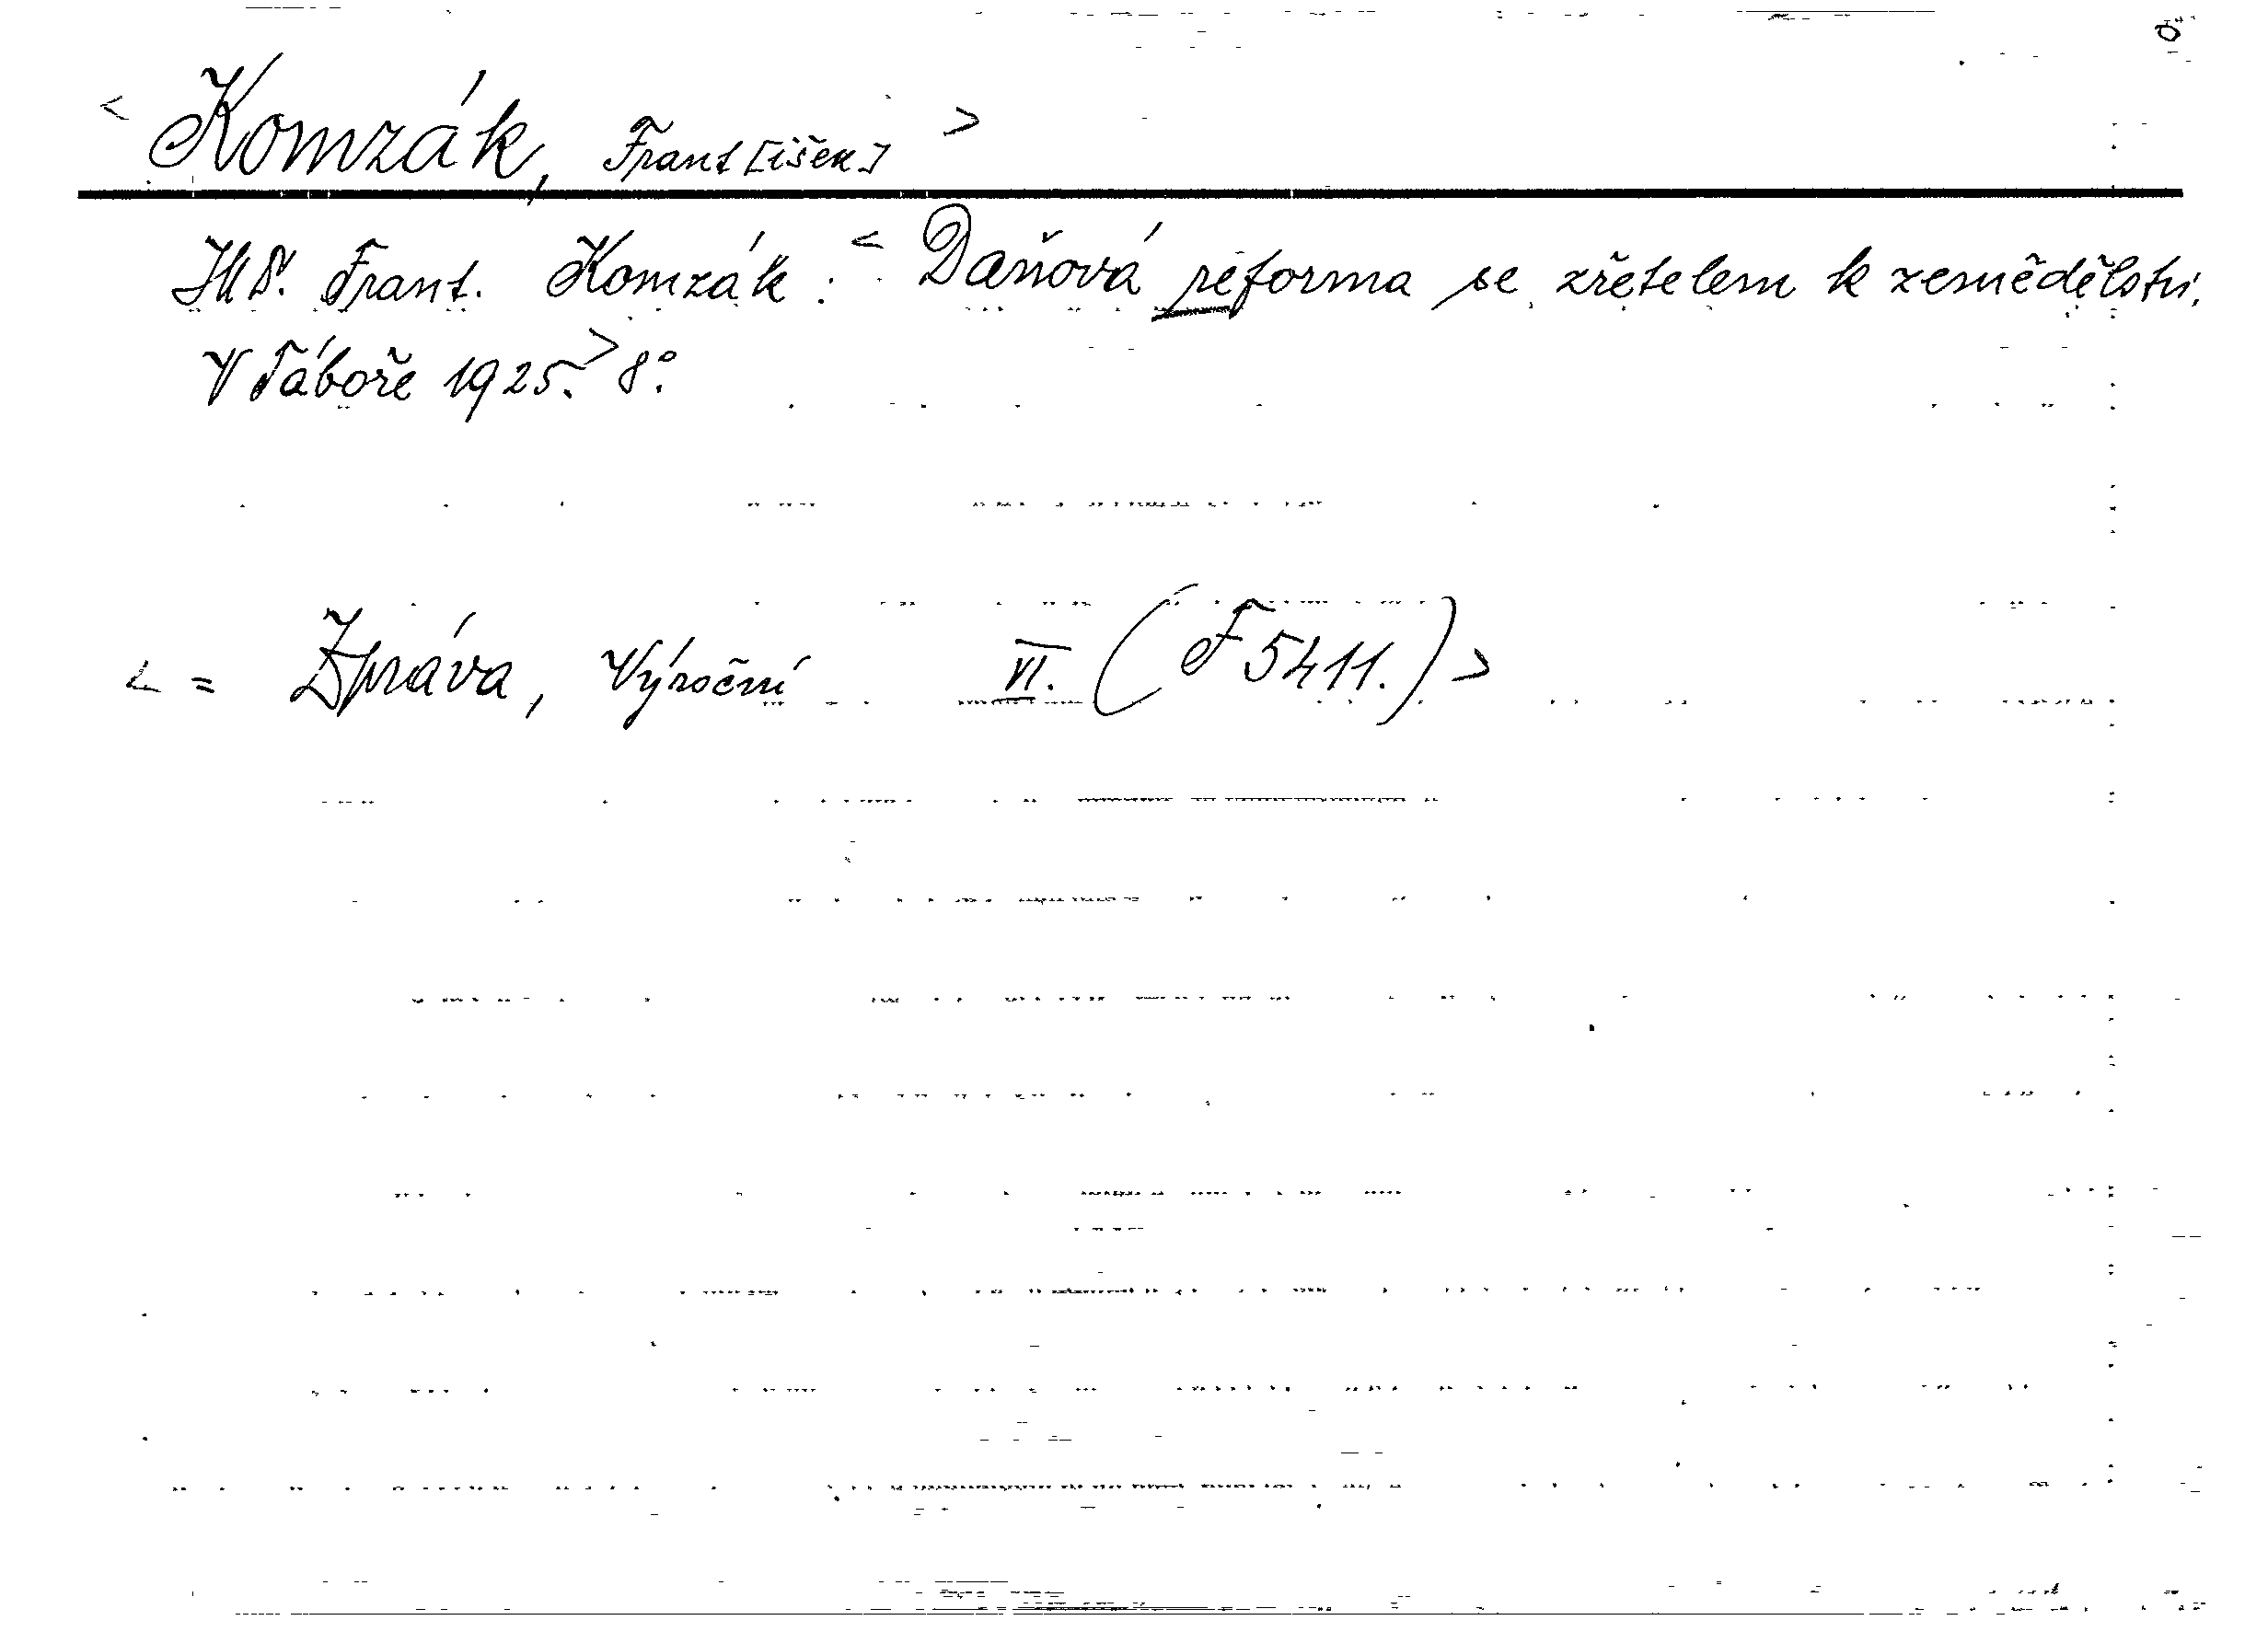 < Komzák, Frant[išek] >
JUDr. Frant. Komzák: < Daňová reforma se zřetelem k zemědělství.
V Táboře 1925. > 8°.
< = Zpráva, Výroční VI. (F 5411.) >